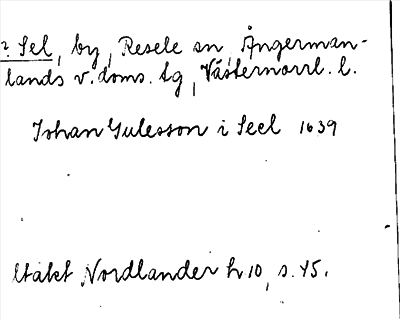 ? Sel, by, Resele sn, Ångerman-
lands v. doms. tg, Västernorrl. l.
Johan Gulesson i Seel 1639
Utakt Nordlander h 10, s. 45.